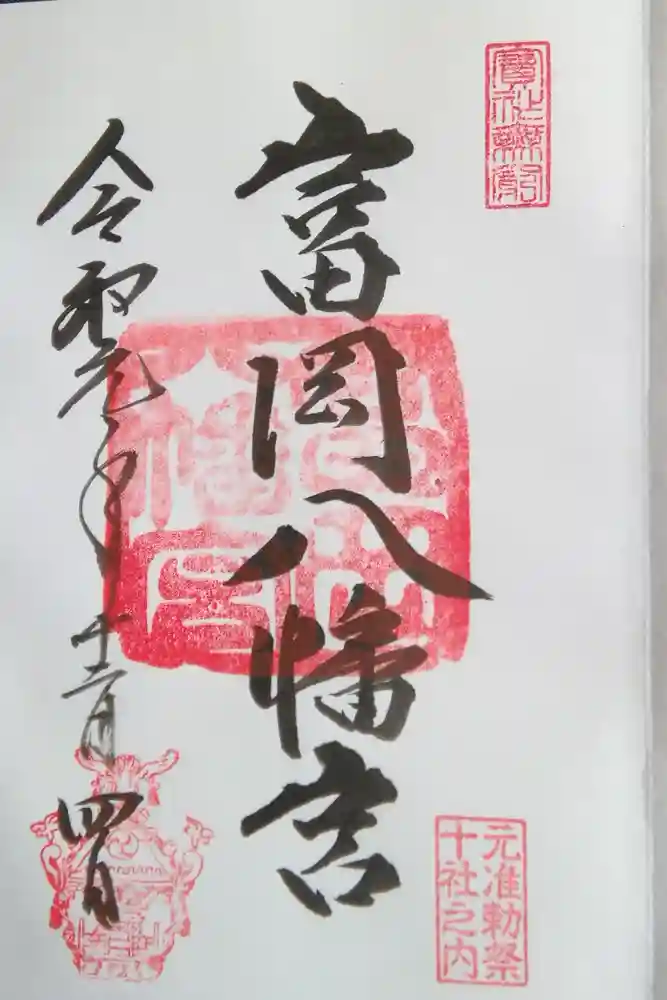 富岡八幡宮
元准勅祭
十社之内
令和元年十二月四日